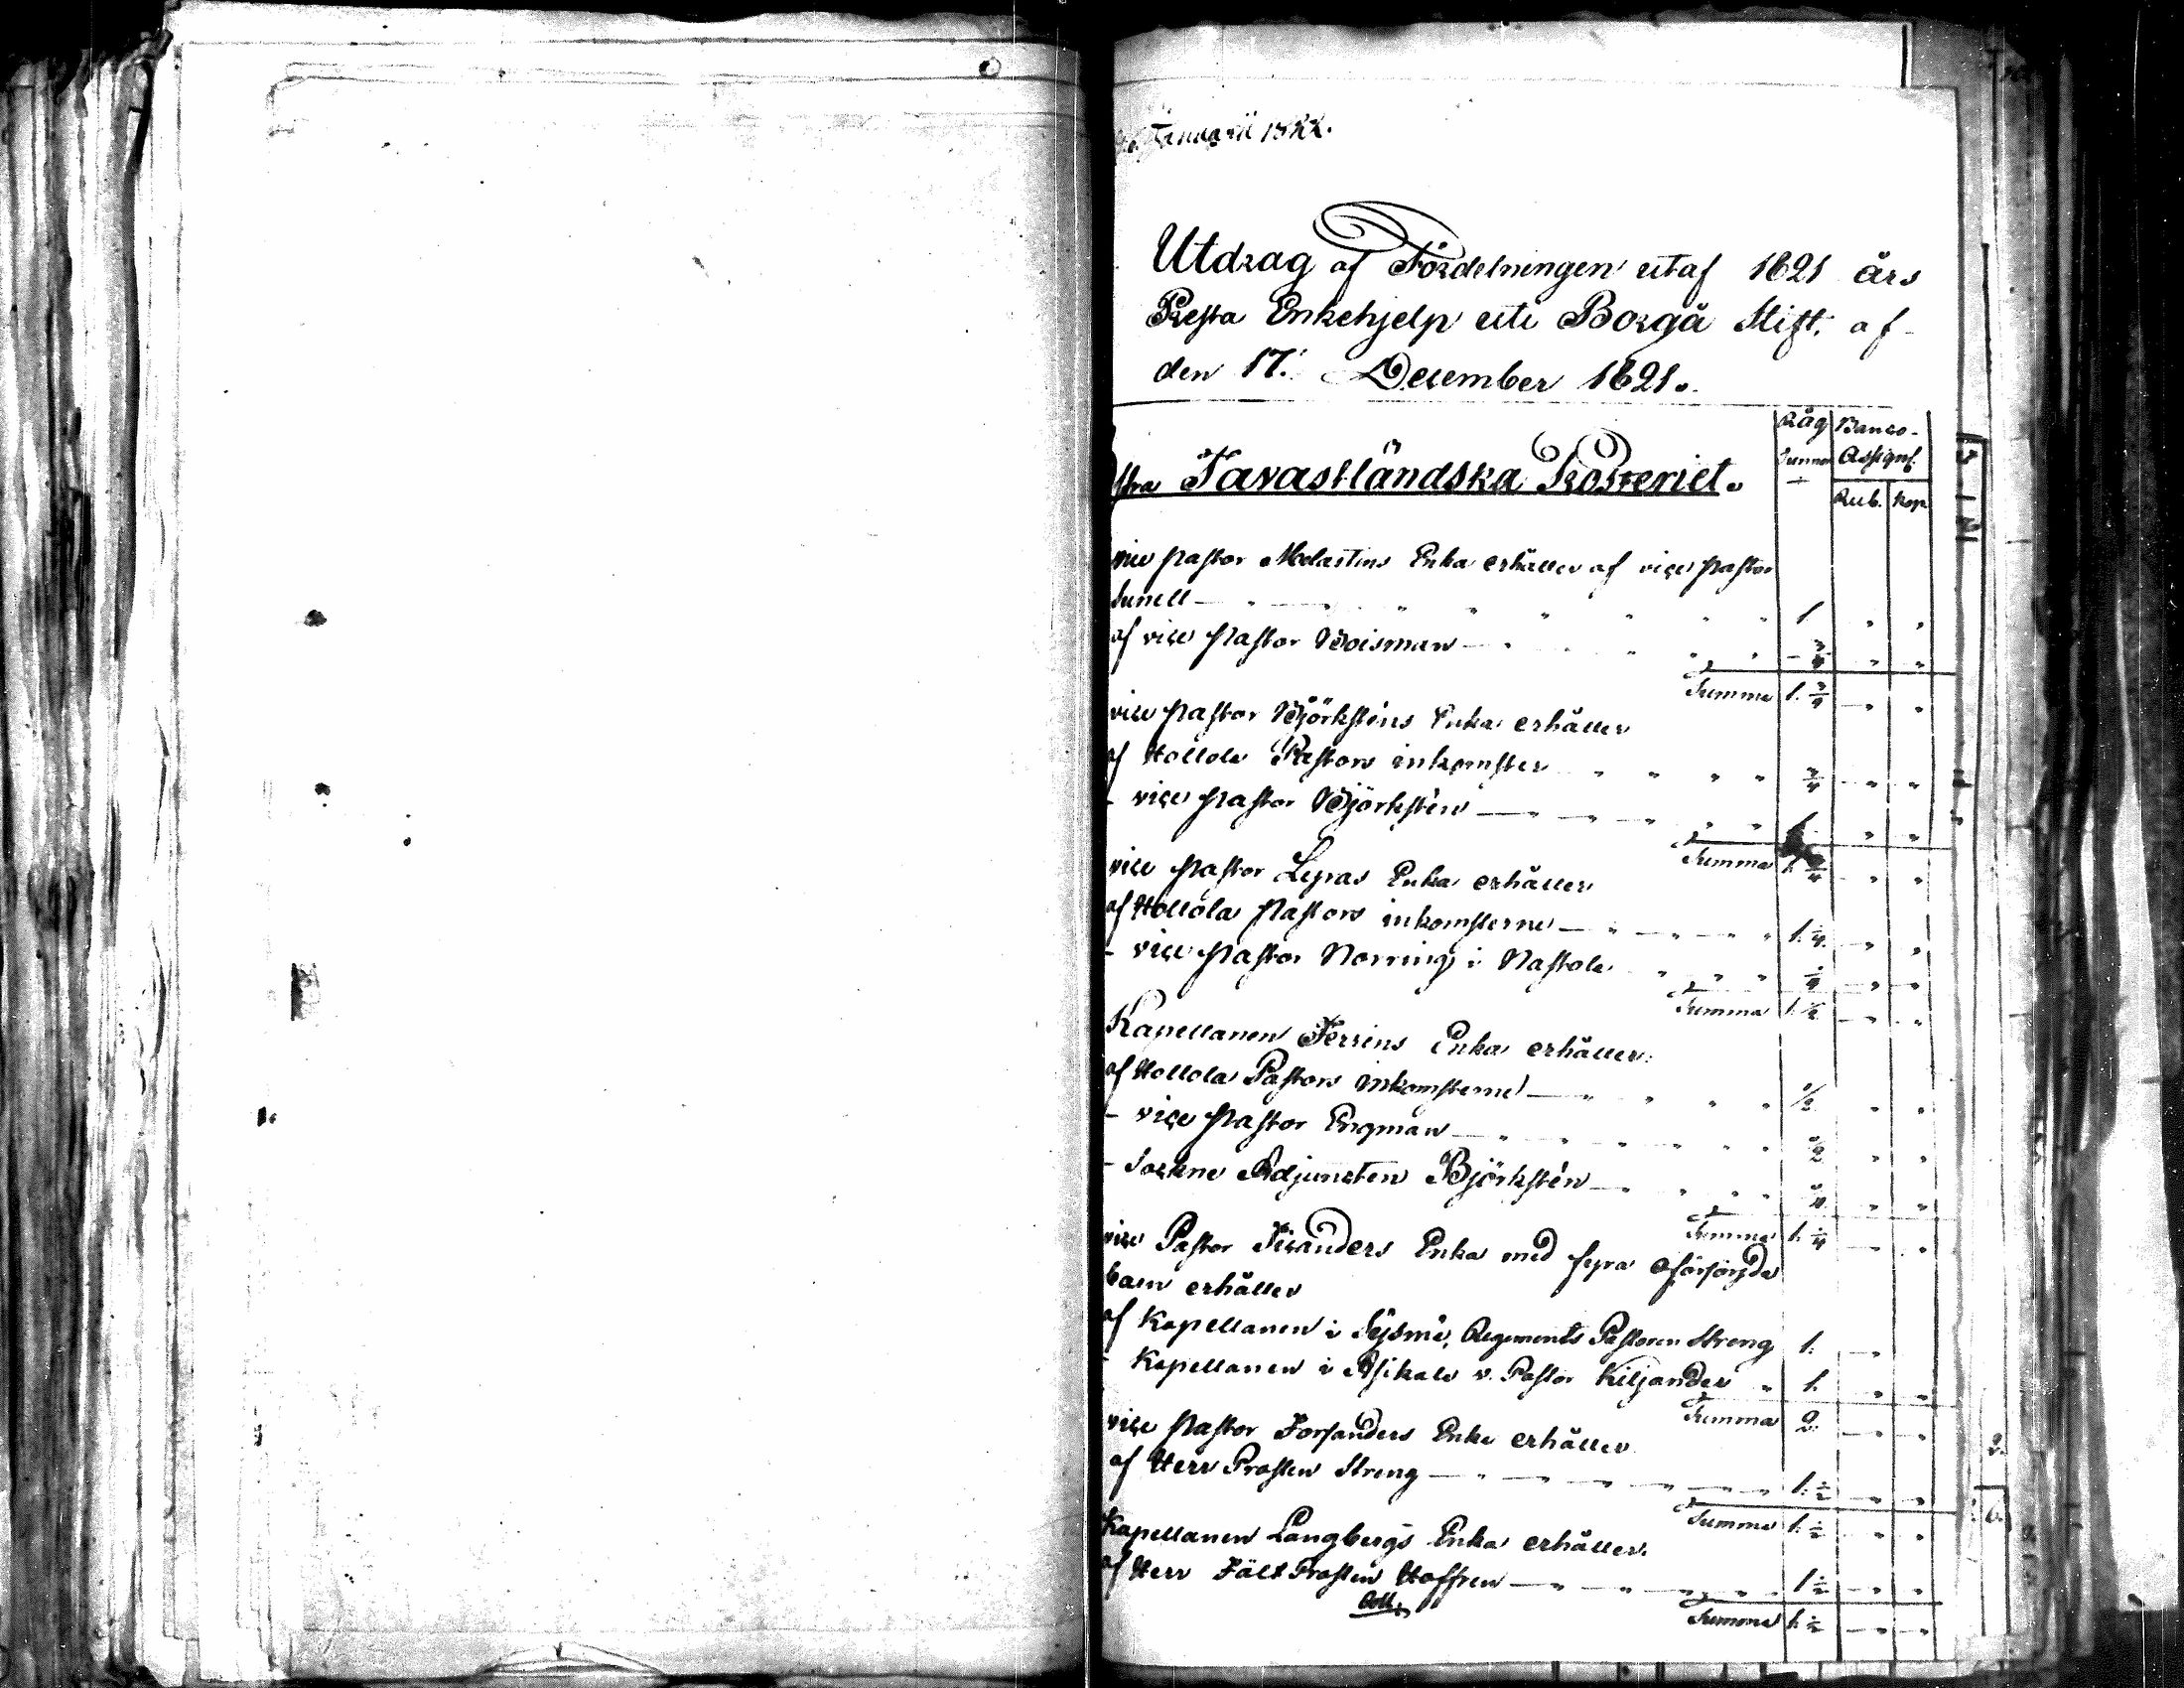 Januarii 1822.
Utdrag af Fördelningen utaf 1821 års
Presta Enkehjelp uti Borgå Stift, af
den 17. December 1821.
Råg Banco-
Tunnor Assignat.
Rub. Kop.
stra Tavastländska Prosteriet.
vice Pastor Melartins Enka erhåller af vice Pastor
Sunell 1
af vice Pastor Woisman 3/4
Summa 1. 3/4
vice Pastor Björksténs Enka erhåller
af Hollola Pastors inkomster 3/4
- vice Pastor Björkstén 1.
Summa 1. 3/4
vice Pastor Lepas Enka erhåller
af Hollola Pastors inkomsterne 1. 1/4
- vice Pastor Norring i Nastola 1/4
Summa 1. 1/2
Kapellanen Ferrins Enka erhåller:
af Hollola Pastors inkomsterne 1/2
- vice Pastor Engman 1/2
- Sockne Adjuncten Björkstén 1/4
Summa 1. 1/4
vice Pastor Euranders Enka med fyra oförsörjda
barn erhåller
af Kapellanen i Sysmä, Regements Pastoren Streng 1.
- Kapellanen i Asikala v. Pastor Kiljander 1.
Summa 2.
vice Pastor Forsanders Enka erhåller
af Herr Prosten Streng 1. 1/2
Summa 1. 1/2
Kapellanen Långbergs Enka erhåller.
af Herr Fält Prosten Hoffren 1 1/2
Summa 1. 1/2